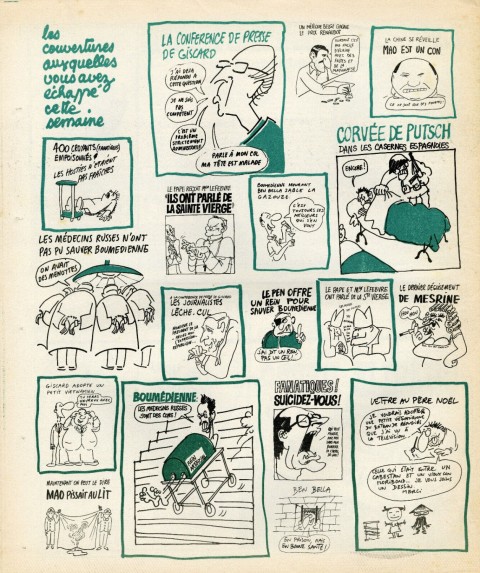 les
couvertures
auxquelles
vous avez
échappé
cette
semaine
LA CONFERENCE DE PRESSE
DE GISCARD
J'AI DEJA
RÉPONDU A
CETTE QUESTION
JE NE SUIS
PAS
COMPÉTENT
C'EST UN
PROBLÈME
STRICTEMENT
PARLE À MON COL
MA TÊTE EST MALADE
UN MÉDECIN BELGE GAGNE
LE PRIX
LA CHINE SE RÉVEILLE
MAO EST UN CON
400 CROYANTS (FANATIQUES)
EMPOISONNÉS
LES HOSTIES N'ÉTAIENT
PAS FRAÎCHES
LE PAPE REÇOIT Mgr LEFEBVRE
"ILS ONT PARLÉ DE
LA SAINTE VIERGE"
BOUMEDIENNE MOURANT
BEN BELLA SABLE LA
GAZOUZE
C'EST
TOUJOURS LES
MEILLEURS
QUI S'EN
VONT
CORVÉE DE PUTSCH
DANS LES CASERNES ESPAGNOLES
ENCORE!
LES MÉDECINS RUSSES N'ONT
PAS PU SAUVER BOUMEDIENNE
ON AVAIT
DES
MENOTTES
LES JOURNALISTES
LÈCHE-CUL
LE PEN OFFRE
UN REIN POUR
SAUVER BOUMEDIENNE
J'AI DIT UN REIN
PAS UN ŒIL!
LE PAPE ET Mgr LEFEBVRE
ONT PARLÉ DE LA Ste VIERGE
LE DERNIER DÉGUISEMENT
DE MESRINE
GISCARD ADOPTE UN
PETIT VIETNAMIEN
BOUMÉDIENNE:
LES MÉDECINS RUSSES
SONT DES CONS!
FANATIQUES!
SUICIDEZ-VOUS!
LETTRE AU PÈRE NOËL
JE VOUDRAIS ADOPTER
UNE PETITE VIETNAMIENNE
DU BATEAU DE
QUE J'AI VU À
LA TÉLÉVISION.
CELLE QUI ÉTAIT ENTRE UN
CABESTAN ET UN VIEUX CON
MORIBOND. JE VOUS FAIS
UN DESSIN.
MERCI
MAINTENANT ON PEUT LE DIRE
MAO PISSAIT AU LIT
BEN BELLA
EN PRISON, MAIS
EN BONNE SANTÉ!